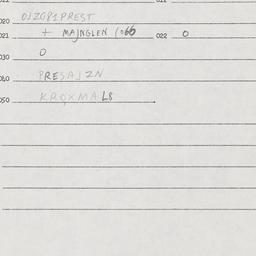 020 OJZG81PREST
021 + MAJNGLEN 1066 022 0
030 0
040 PRESAJZN
050 KROXMALS